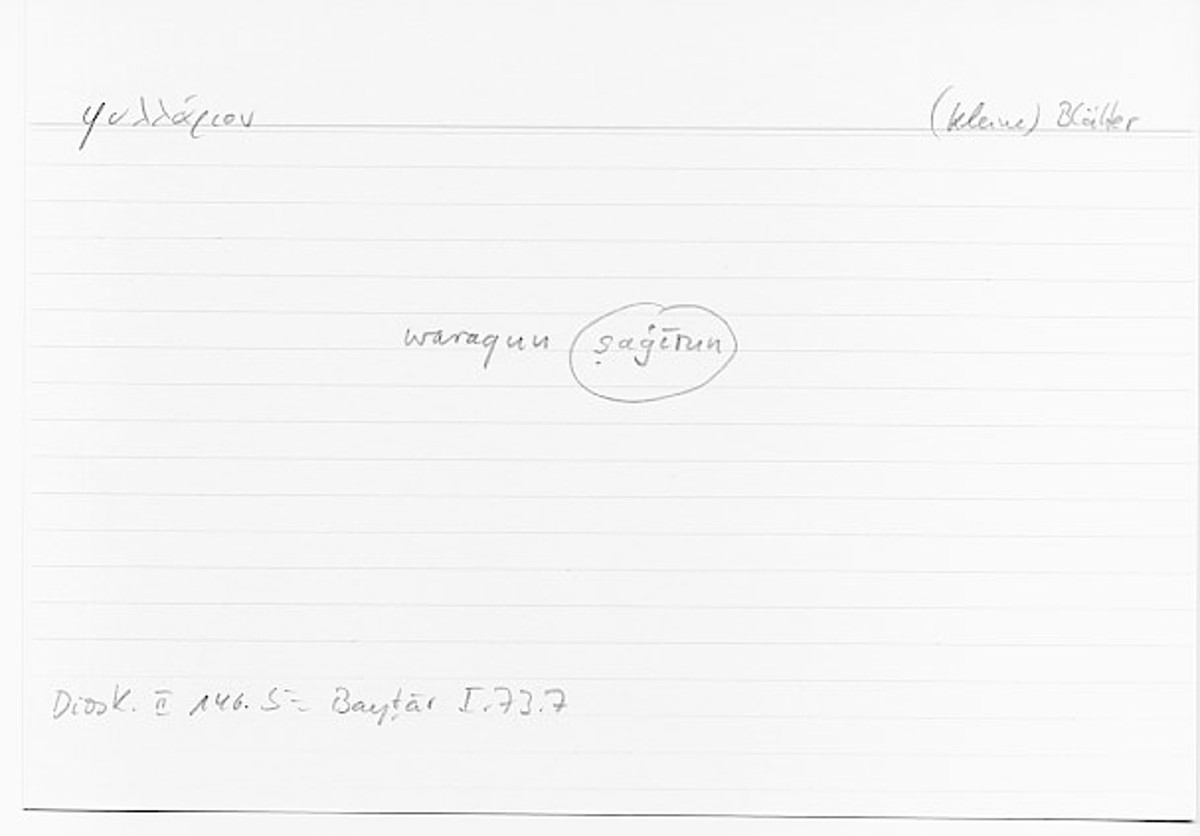 φυλλάριον (kleine) Blätter
waraqun ṣaġīrun
Diosk. II 146.5 = Bayṭār I.73.7